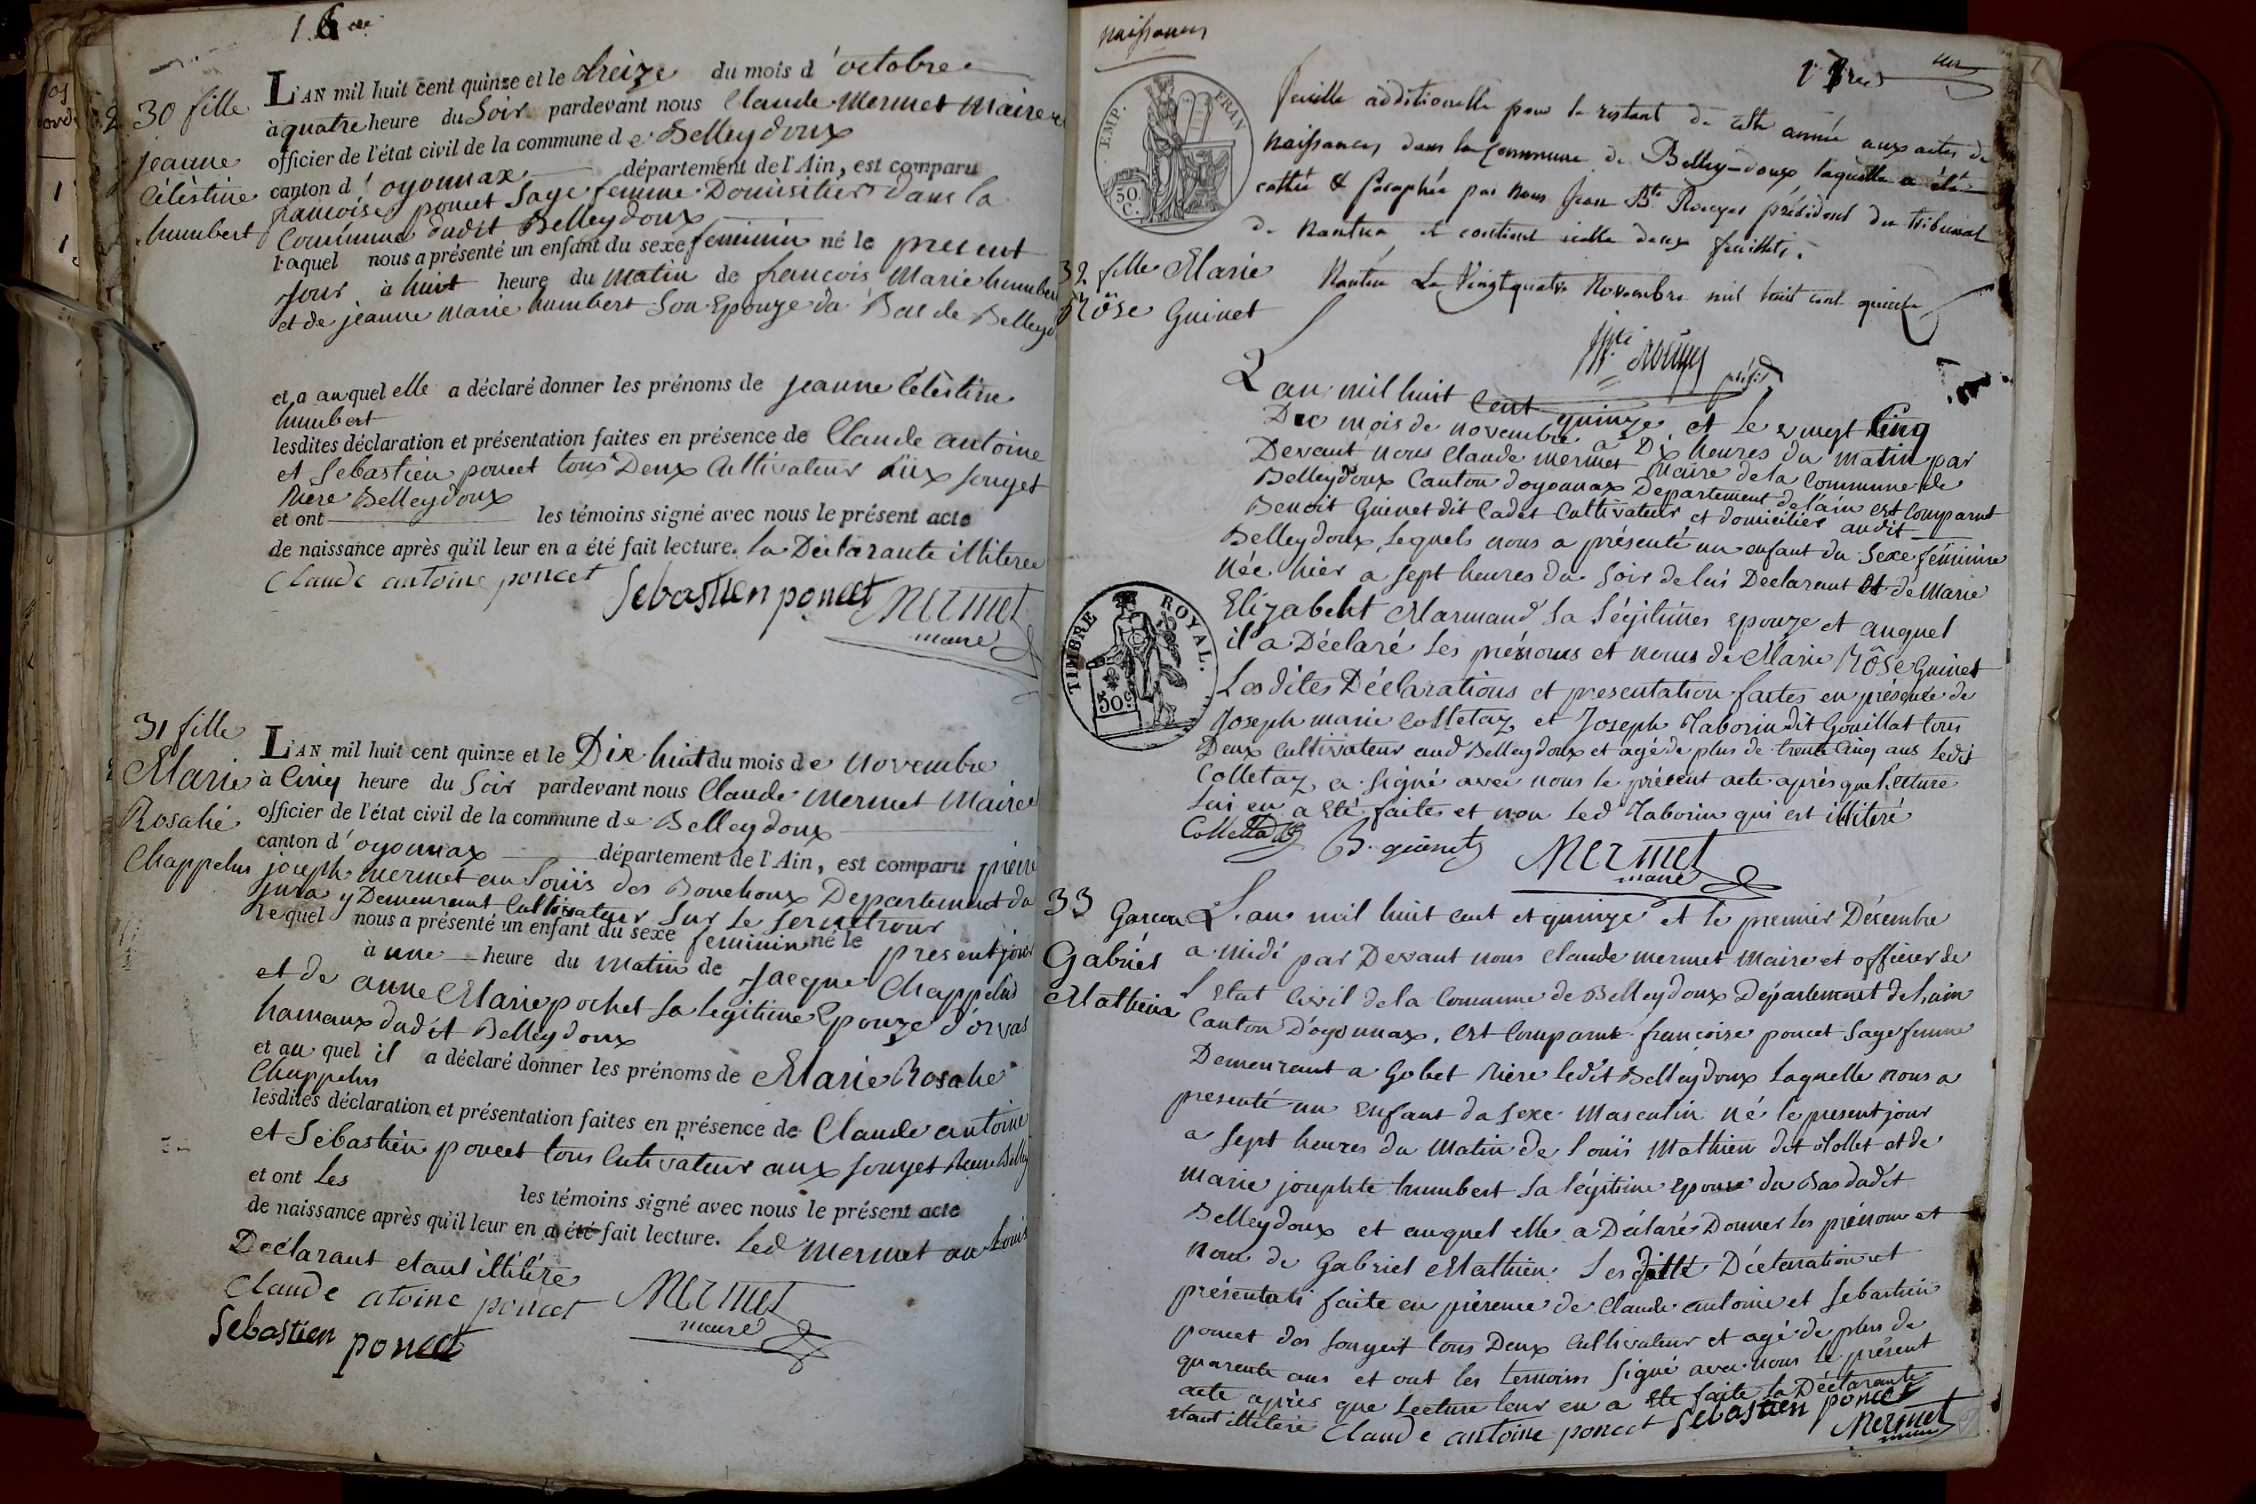 16
30 fille
jeanne
Célèstine
humbert
L'AN mil huit cent quinze et le treize du mois d'octobre
à quatre heure du Soir pardevant nous Claude Mermet Maire et
officier de l'état civil de la commune de Belleydoux
canton d'oyonnax département de l'Ain, est comparu
francoise poncet Sage femme Domicilier dans la
Commune dudit Belleydoux
laquel nous a présenté un enfant du sexe feminin né le present
Jour à huit heure du matin de francois Marie humbert
et de jeanne marie humbert Son Epouze du Bas de Belleyd
et a auquel elle a déclaré donner les prénoms de jeanne Célèstine
humbert
lesdites déclaration et présentation faites en présence de Claude antoine
et Sebastien poncet tous Deux Cultivateur aux Jouget
Riere Belleydoux
et ont les témoins signé avec nous le présent acte
de naissance après qu'il leur en a été fait lecture. la Déclarante illiteree
Claude antoine poncet
Sebastien poncet Mermet
maire
31 fille
Marie
Rosalie
Chappelus
L'AN mil huit cent quinze et le Dix huit du mois de Novembre
à Cinq heure du Soir pardevant nous Claude Mermet Maire et
officier de l'état civil de la commune de Belleydoux
canton d'oyonnax département de l'Ain, est comparu pierre
joseph mermet au Louis des Bouchoux Departement du
jura y Demeurant Cultivateur Sur le
lequel nous a présenté un enfant du sexe feminin né le present jour
à une heure du matin de Jacque Chappelus
et de anne Marie pochet Sa legitime Epouze d'orvas
hameaux dudit Belleydoux
et au quel il a déclaré donner les prénoms de Marie Rosalie
Chappelus
lesdites déclaration et présentation faites en présence de Claude antoine
et Sébastien poncet tous Cultivateur aux jouget Riere Belley
et ont Les les témoins signé avec nous le présent acte
de naissance après qu'il leur en a été fait lecture. Led Mermet au Louis
Déclarant etant illitére
Claude atoine poncet Mermet
maire
Sebastien poncet
naissances
17
EMP. FRAN
50.
C.
feuille additionelle pour le restant de cette année aux actes de
naissances dans la Commune de Belley-doux laquelle a été
cottée & paraphée par nous Jean Bte Rouyer président du tribunal
de Nantua et contient icelle deux feuillets.
Nantua Le Vingtquatre Novembre mil huit cent quinze
présidt
32 fille Marie
Rôse Guinet
L'an mil huit Cent quinze et Le vingt Cinq
Du mois de novembre a Dix heures du matin par
Devant nous Claude Mermet Maire de la Commune de
Belleydoux Canton d'oyonnax Departement de l'ain est Comparut
Benoit Guinet dit Cadet Cultivateur et domicilier audit
Belleydoux, Lequels nous a présenté un enfant du Sexe féminine
Née hier a sept heures du Soir de lui Déclarant et de Marie
Elizabeht Marmand Sa Légitimes epouze et auquel
il a Déclaré Les prénoms et noms de Marie Rôse Guinet
Les dites Déclarations et presentation faites en présence de
Joseph marie Colletaz et Joseph Taborin dit Gouillat tous
Deux Cultivateur aud Belleydoux et agé de plus de trente Cinq ans Ledit
Colletaz a Signé avec nous le présent acte après que Lecture
Lui en a été faites et non Led Taborin qui est illitéré
TIMBRE ROYAL.
50c.
Colletaz B. guinet Mermet
maire
33 Garcon
Gabriel
Mathieu
L'an mil huit cent et quinze et le premier Décembre
a midi par Devant nous Claude mermet Maire et officier de
l'Etat Civil de la Commune de Belleydoux Département de l'ain
Canton D'oyonnax, est Comparut francoise poncet Sage femme
Demeurant a Gobet Rière ledit Belleydoux Laquelle nous a
presenté un Enfant du Sexe Masculin né le present jour
a sept heures du Matin de Louis Mathieu dit Rollet et de
Marie josephte humbert Sa légitime epouse du Bas dudit
Belleydoux et auquel elle a Déclaré Donner les prénom et
Nom de Gabriel Mathieu Les ditte Déclaration et
présentati faite en présence de Claude antoine et Sebastien
poncet des Jouget tous Deux Cultivateur et agé de plus de
quarente ans et ont les temoins Signé avec nous le présent
acte après que Lecture leur en a été faite la Déclarante
étant illitére Claude antoine poncet Sebastien poncet
Mermet
maire